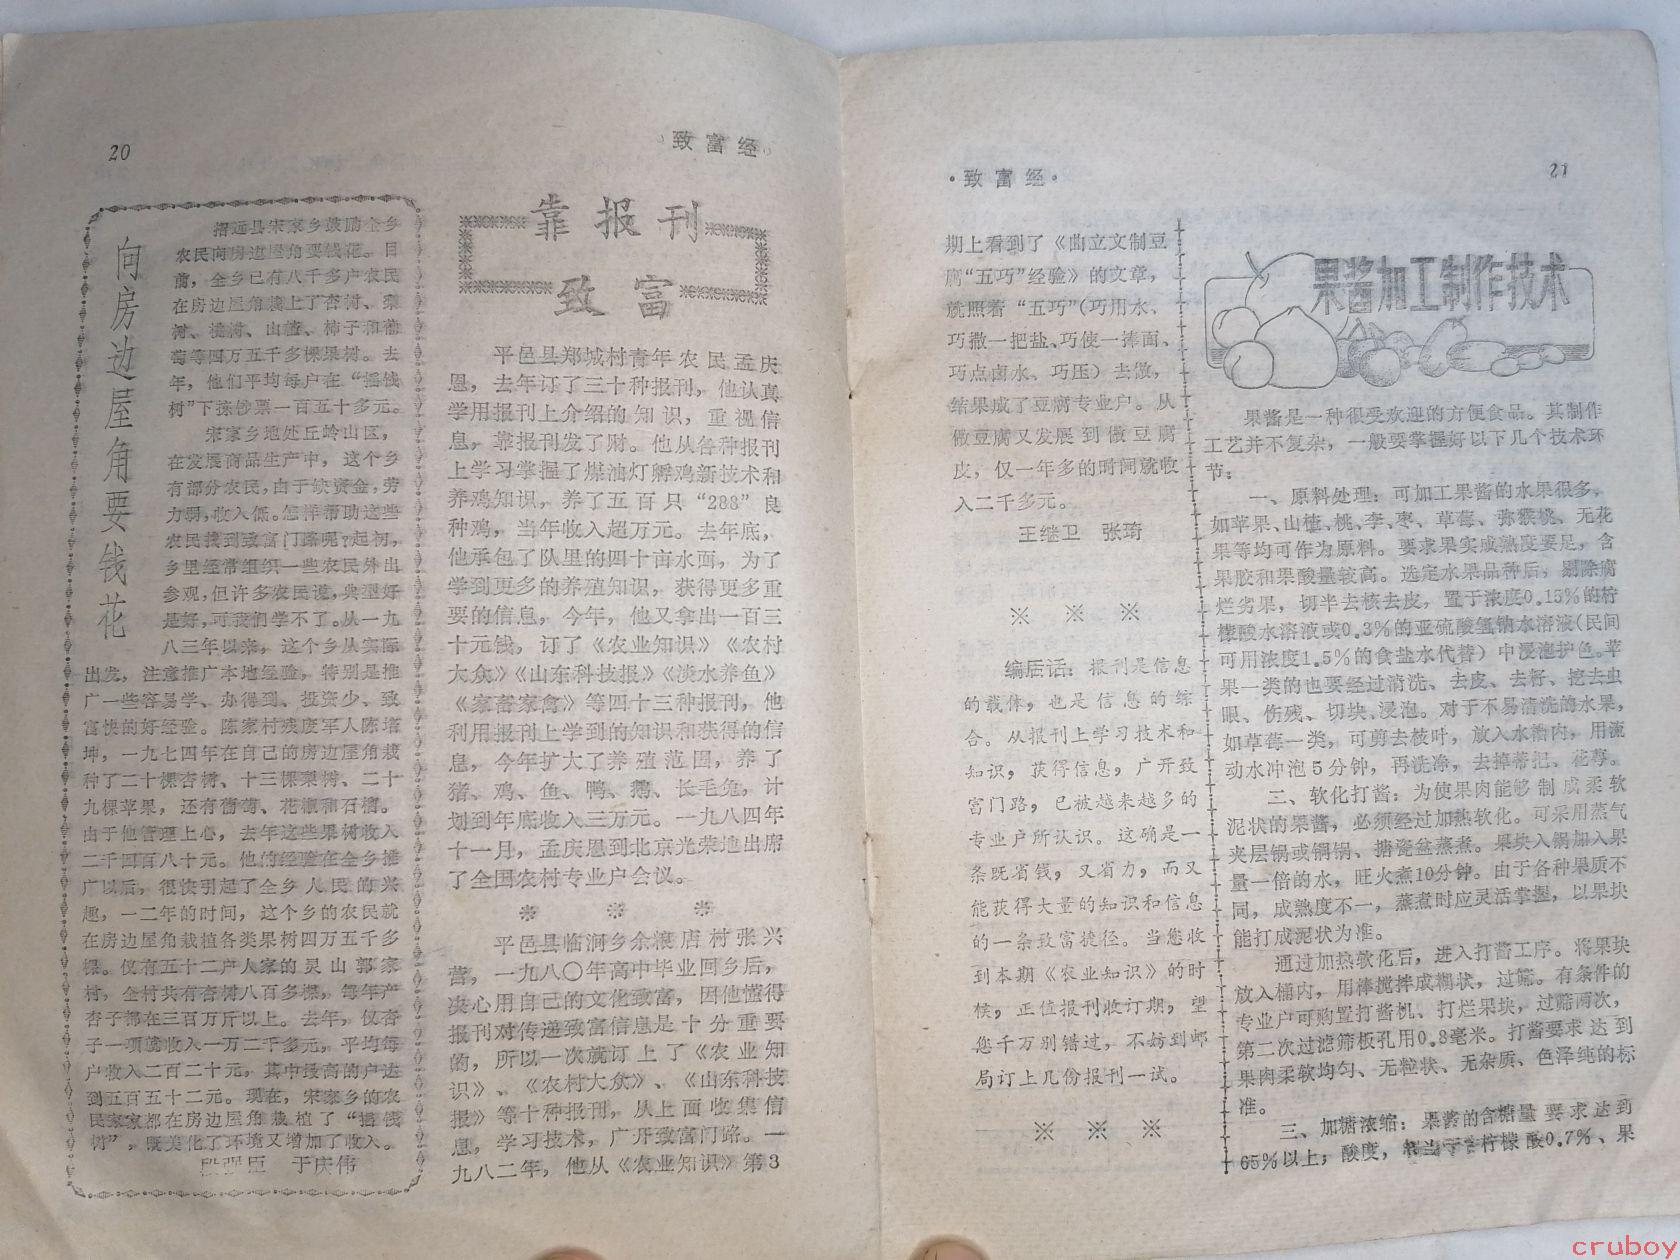 20
致富经
向房边屋角要钱花
招远县宋家乡鼓励全乡
农民向房边屋角要钱花。目
前，全乡已有八千多户农民
在房边屋角栽上了杏树、梨
树、桃树、山楂、柿子和葡
萄等四万五千多棵果树。去
年，他们平均每户在“摇钱
树”下拣钞票一百五十多元。
宋家乡地处丘岭山区，
在发展商品生产中，这个乡
有部分农民，由于缺资金，劳
力弱，收入低。怎样帮助这些
农民找到致富门路呢？起初，
乡里经常组织一些农民外出
参观，但许多农民说，典型好
是好，可我们学不了。从一九
八三年以来，这个乡从实际
出发，注意推广本地经验，特别是推
广一些容易学、办得到、投资少、致
富快的好经验。陈家村残废军人陈培
坤，一九七四年在自己的房边屋角栽
种了二十棵杏树、十三棵梨树、二十
九棵苹果，还有葡萄、花椒和石榴。
由于他管理上心，去年这些果树收入
二千四百八十元。他的经验在全乡推
广以后，很快引起了全乡人民的兴
趣，一二年的时间，这个乡的农民就
在房边屋角栽植各类果树四万五千多
棵。仅有五十二户人家的灵山郭家
村，全村共有杏树八百多棵，每年产
杏子都在三百万斤以上。去年，仅杏
子一项就收入一万二千多元，平均每
户收入二百二十元，其中最高的户达
到五百五十二元。现在，宋家乡的农
民家家都在房边屋角栽植了“摇钱
树”，既美化了环境又增加了收入。
于庆伟
靠报刊
致富
平邑县郑城村青年农民孟庆
恩，去年订了三十种报刊，他认真
学用报刊上介绍的知识，重视信
息，靠报刊发了财。他从各种报刊
上学习掌握了煤油灯孵鸡新技术和
养鸡知识，养了五百只“288”良
种鸡，当年收入超万元。去年底，
他承包了队里的四十亩水面，为了
学到更多的养殖知识，获得更多重
要的信息，今年，他又拿出一百三
十元钱，订了《农业知识》《农村
大众》《山东科技报》《淡水养鱼》
《家畜家禽》等四十三种报刊，他
利用报刊上学到的知识和获得的信
息，今年扩大了养殖范围，养了
猪、鸡、鱼、鸭、鹅、长毛兔，计
划到年底收入三万元。一九八四年
十一月，孟庆恩到北京光荣地出席
了全国农村专业户会议。
※ ※ ※
平邑县临涧乡余粮店村张兴
营，一九八〇年高中毕业回乡后，
决心用自己的文化致富，因他懂得
报刊对传递致富信息是十分重要
的，所以一次就订上了《农业知
识》、《农村大众》、《山东科技
报》等十种报刊，从上面收集信
息，学习技术，广开致富门路。一
九八二年，他从《农业知识》第3
·致富经·
21
期上看到了《曲立文制豆
腐“五巧”经验》的文章，
就照着“五巧”（巧用水、
巧撒一把盐、巧使一捧面、
巧点卤水、巧压）去做，
结果成了豆腐专业户。从
做豆腐又发展到做豆腐
皮，仅一年多的时间就收
入二千多元。
王继卫 张琦
※ ※ ※
编后话：报刊是信息
的载体，也是信息的综
合。从报刊上学习技术和
知识，获得信息，广开致
富门路，已被越来越多的
专业户所认识。这确是一
条既省钱，又省力，而又
能获得大量的知识和信息
的一条致富捷径。当您收
到本期《农业知识》的时
候，正值报刊收订期，望
您千万别错过，不妨到邮
局订上几份报刊一试。
※ ※ ※
果酱加工制作技术
果酱是一种很受欢迎的方便食品。其制作
工艺并不复杂，一般要掌握好以下几个技术环
节：
一、原料处理：可加工果酱的水果很多，
如苹果、山楂、桃、李、枣、草莓、弥猴桃、无花
果等均可作为原料。要求果实成熟度要足，含
果胶和果酸量较高。选定水果品种后，剔除腐
烂劣果，切半去核去皮，置于浓度0.15%的柠
檬酸水溶液或0.3%的亚硫酸氢钠水溶液（民间
可用浓度1.5%的食盐水代替）中浸泡护色。苹
果一类的也要经过清洗、去皮、去籽、挖去虫
眼、伤残、切块、浸泡。对于不易清洗的水果，
如草莓一类，可剪去枝叶，放入水槽内，用流
动水冲泡5分钟，再洗净，去掉蒂把、花萼。
二、软化打酱：为使果肉能够制成柔软
泥状的果酱，必须经过加热软化。可采用蒸气
夹层锅或铜锅、搪瓷盆蒸煮。果块入锅加入果
量一倍的水，旺火煮10分钟。由于各种果质不
同，成熟度不一，蒸煮时应灵活掌握，以果块
能打成泥状为准。
通过加热软化后，进入打酱工序。将果块
放入桶内，用棒搅拌成糊状，过筛。有条件的
专业户可购置打酱机、打烂果块，过筛两次，
第二次过滤筛板孔用0.8毫米。打酱要求达到
果肉柔软均匀、无粒状、无杂质、色泽纯的标
准。
三、加糖浓缩：果酱的含糖量要求达到
65%以上；酸度，相当于含柠檬酸0.7%、果
cruboy